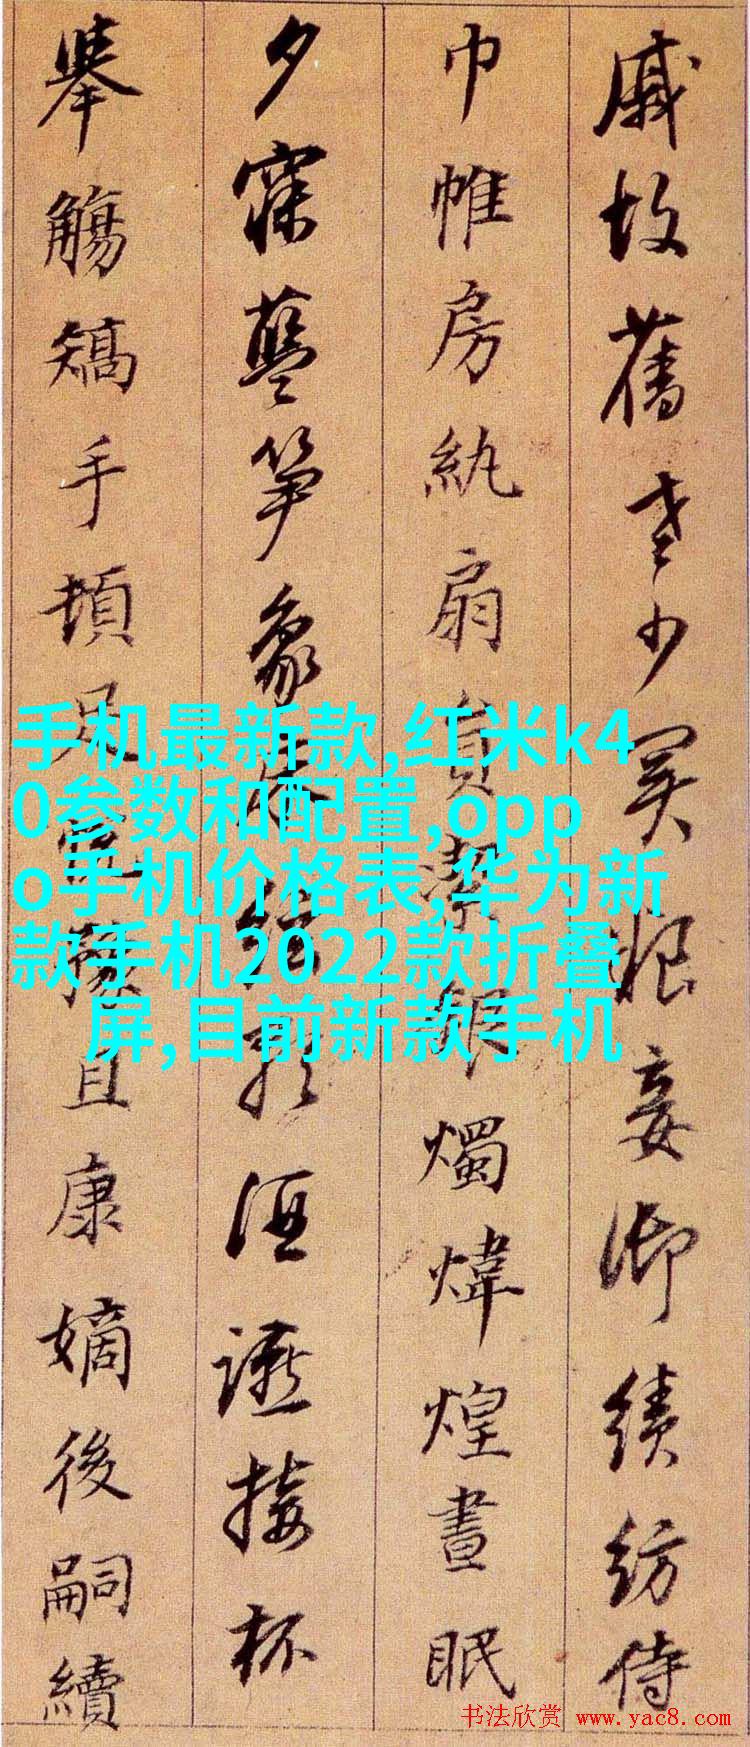 戚故舊老少異粮妾御績紡侍
巾帷房紈扇員潔銀燭煒煌晝眠
夕寐藍笋象床絃歌酒讌接杯
舉觴矯手頓足悅豫且康嫡後嗣續
手机最新款,红米k4
0参数和配置,opp
o手机价格表,华为新
款手机2022款折叠
屏,目前新款手机
书法欣赏 www.yac8.com